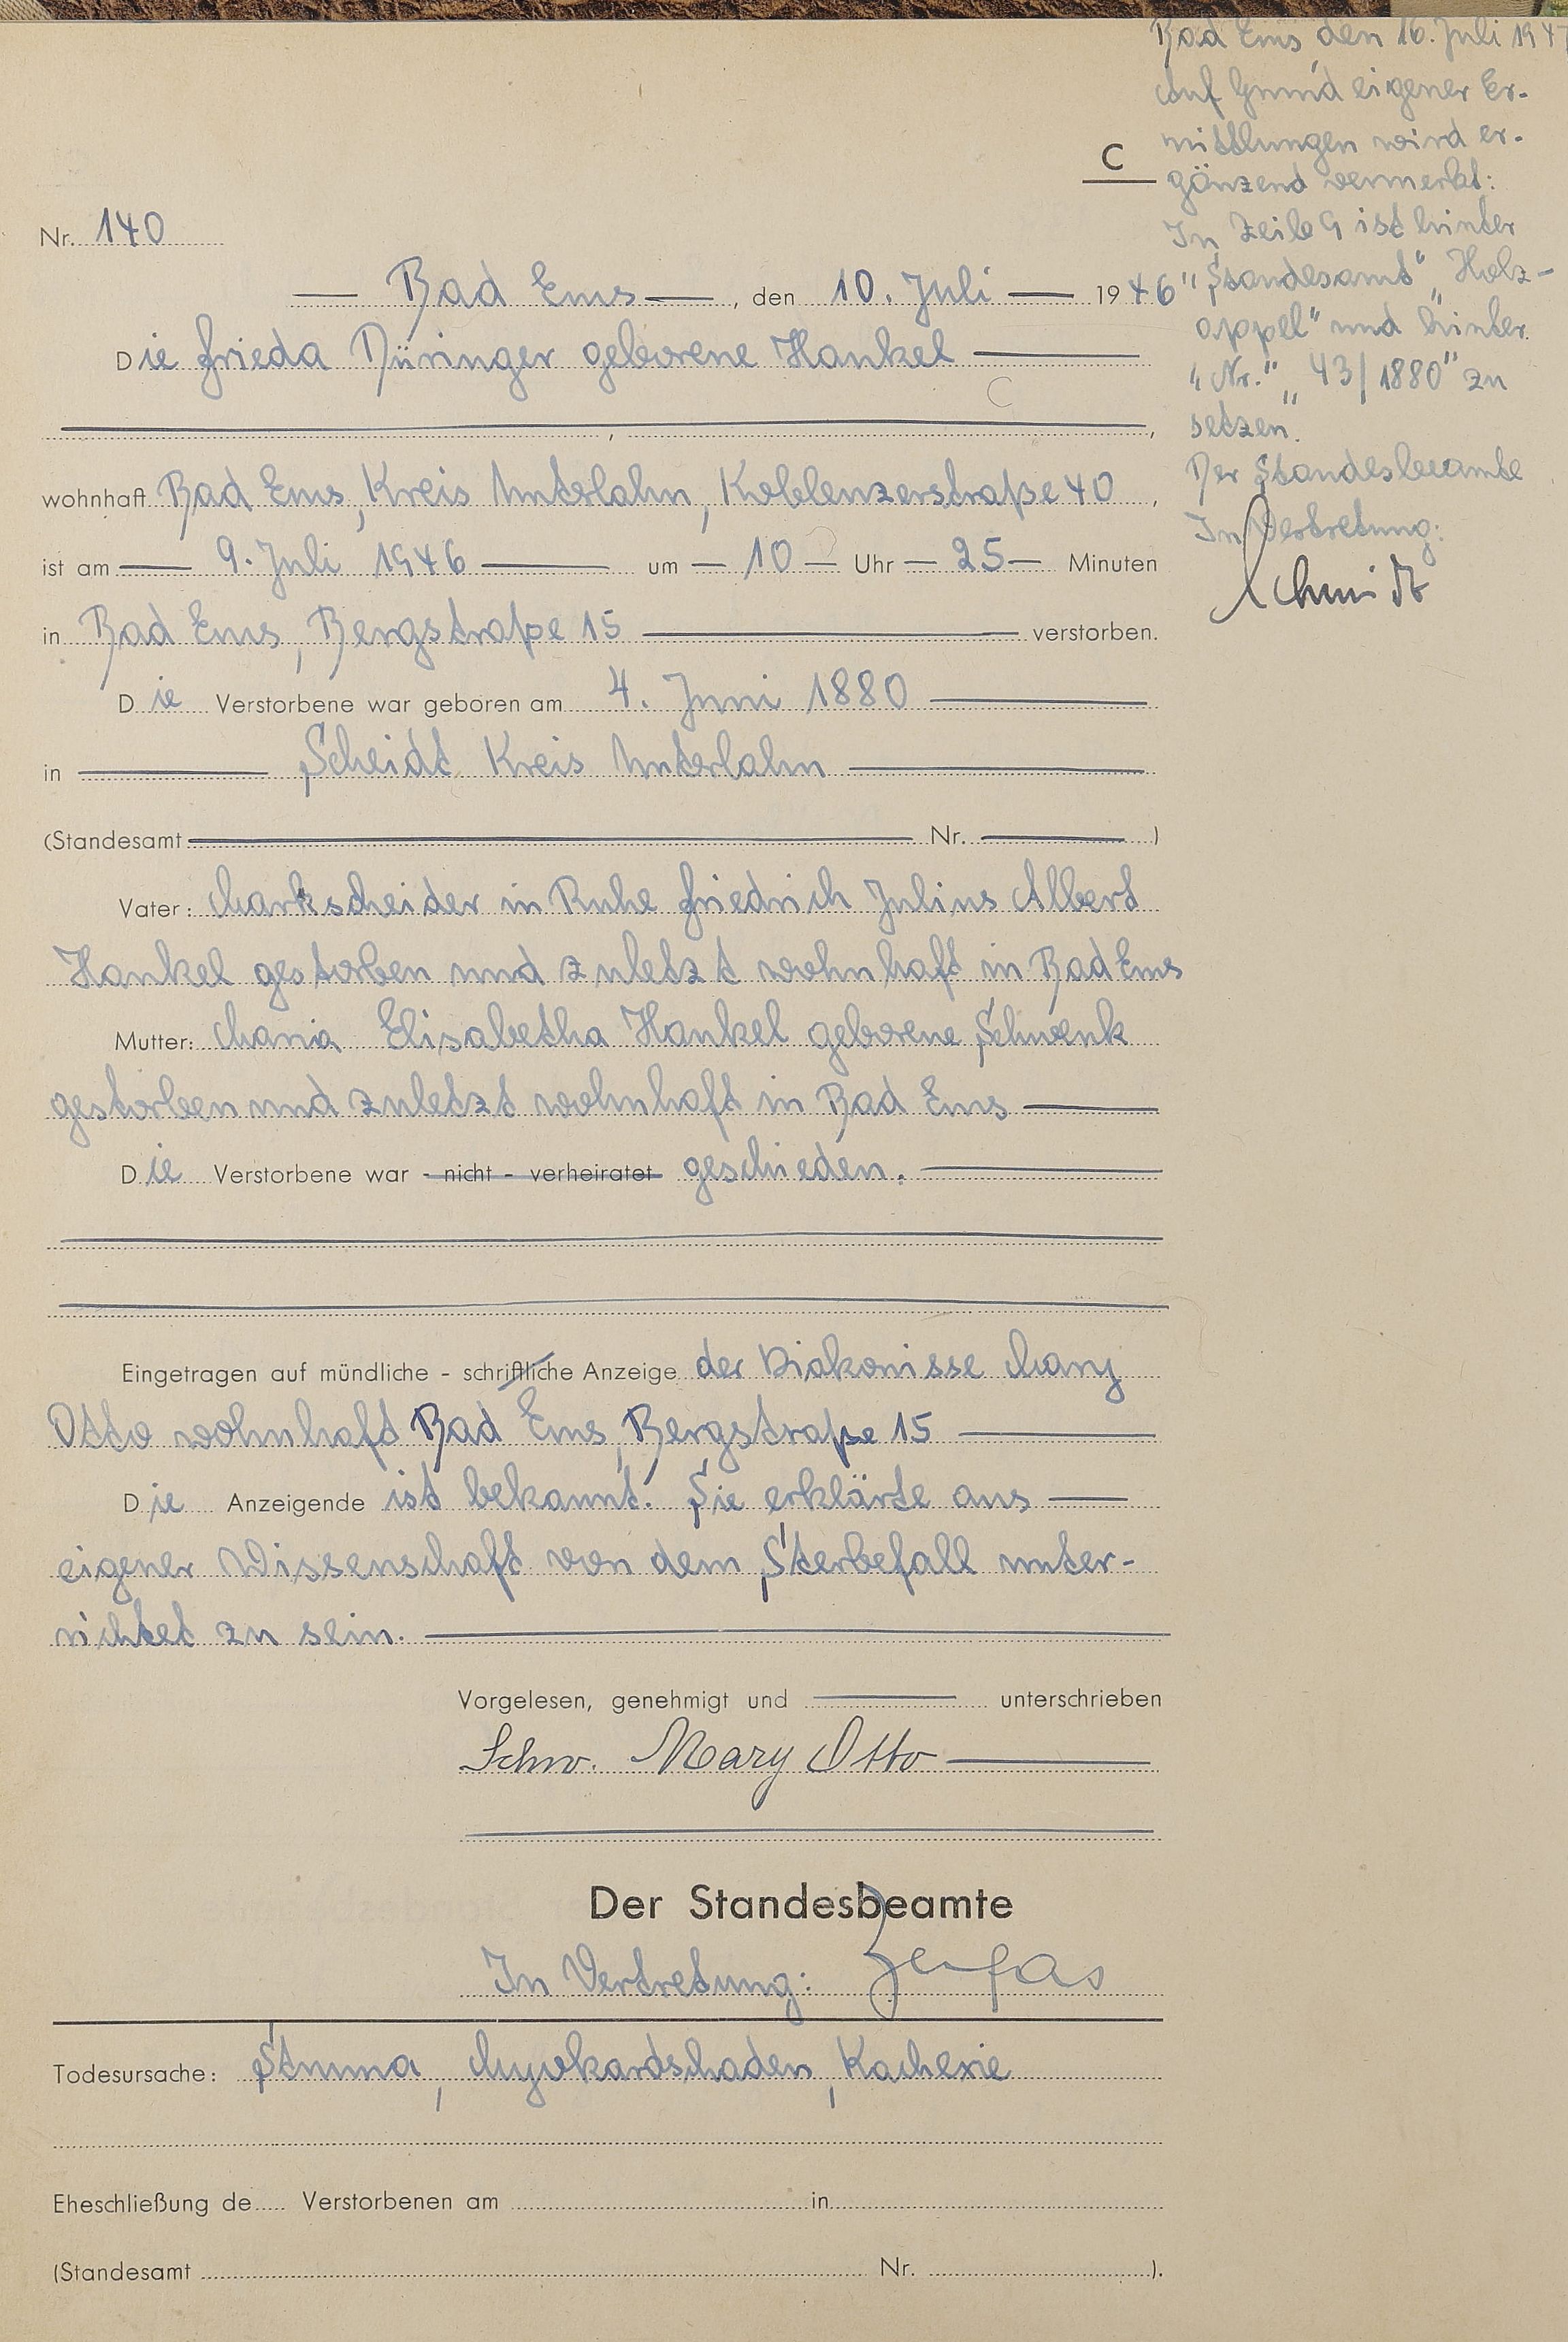 C
Nr. 140
— Bad Ems —, den 10. Juli — 1946
Die Frieda Düringer geborene Hankel —
C
wohnhaft Bad Ems, Kreis Unterlahn, Koblenzerstraße 40,
ist am — 9. Juli 1946 — um — 10 — Uhr — 25 — Minuten
in Bad Ems, Bergstraße 15 — verstorben.
Die Verstorbene war geboren am 4. Juni 1880 —
in — Scheidt Kreis Unterlahn —
(Standesamt — Nr. — )
Vater: Markscheider in Ruhe Friedrich Julius Albert
Hankel gestorben und zuletzt wohnhaft in Bad Ems
Mutter: Maria Elisabetha Hankel geborene Schwenk
gestorben und zuletzt wohnhaft in Bad Ems —
Die Verstorbene war - nicht - verheiratet geschieden. —
Eingetragen auf mündliche - schriftliche Anzeige der Diakonisse Mary
Otto wohnhaft Bad Ems, Bergstraße 15 —
Die Anzeigende ist bekannt. Sie erklärte aus —
eigener Wissenschaft von dem Sterbefall unter-
richtet zu sein. —
Vorgelesen, genehmigt und — unterschrieben
Schw. Mary Otto —
Der Standesbeamte
In Vertretung:
Todesursache: Struma, Myokardschaden, Kachexie
Eheschließung de Verstorbenen am in
(Standesamt Nr. ).
Bad Ems, den 16. Juli 1947
Auf Grund eigener Er-
mittlungen wird er-
gänzend vermerkt:
In Zeile 9 ist hinter
"Standesamt" "Holz-
appel" und hinter
"Nr." "43/1880" zu
setzen.
Der Standesbeamte
In Vertretung:
Schmidt